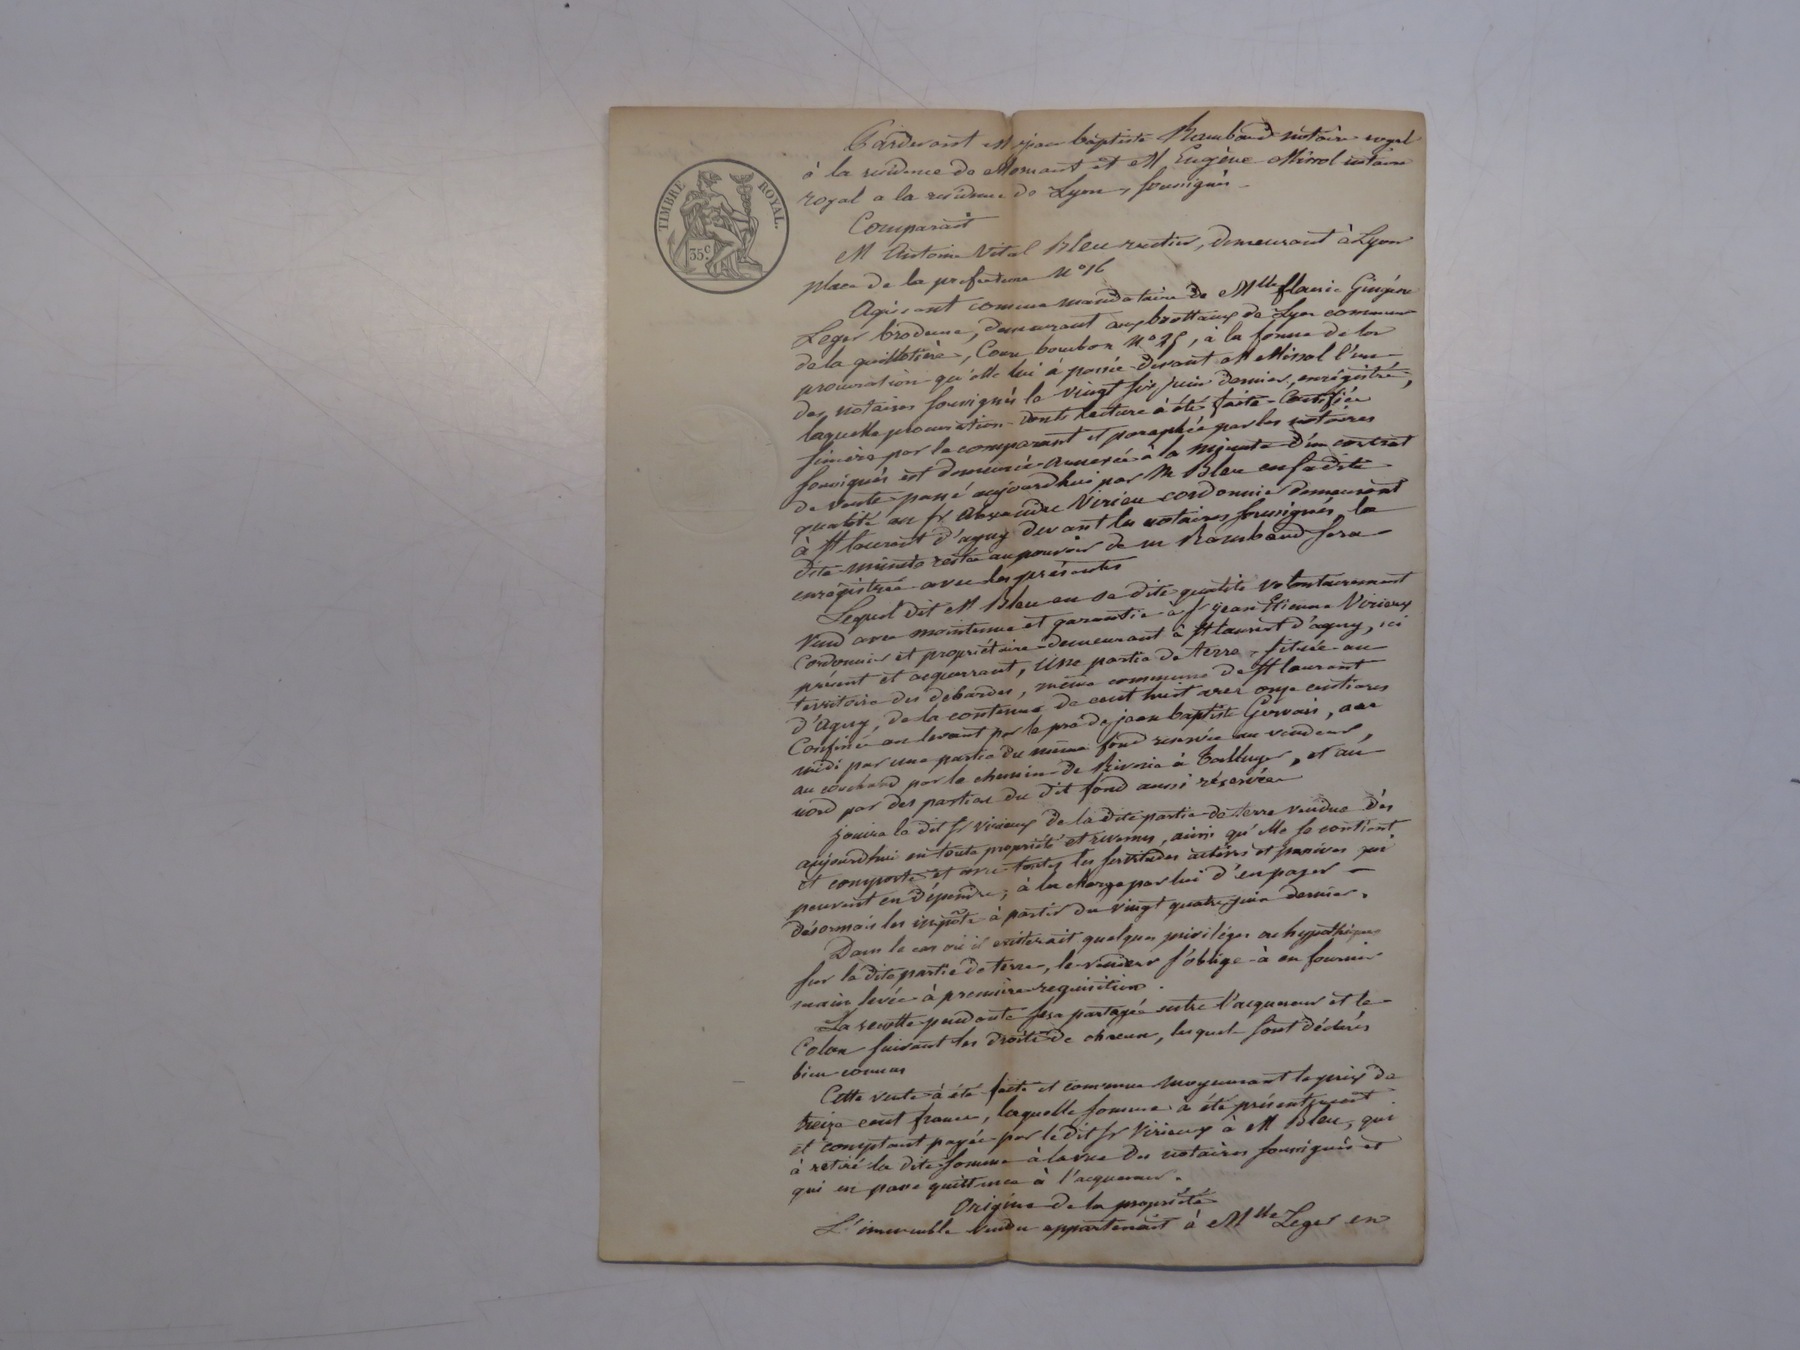 TIMBRE ROYAL.
35c.
Pardevant Me jean baptiste Rambaud notaire royal
à la residence de Mornant et Me Eugène Missol notaire
royal a la residence de Lyon, soussignés
Comparait
M Antoine Vital Bleu rentier, demeurant à Lyon
place de la prefecture No 16
Agissant comme mandataire de Mlle flavie
Leger brodeuse, demeurant aux brottaux de Lyon commune
de la guillotière, Cour bourbon No 25, à la forme de la
procuration qu'elle lui à passée devant Me Missol l'un
des notaires soussignés le vingt six juin dernier, enrégistré,
laquelle procuration dont lecture à été faite Certifiée
sincère par le comparant et paraphée par les notaires
soussignés est demeurée annexée à la minute d'un contrat
de vente passé aujourdhui par M Bleu en sa dite
qualité au sr Alexandre Virieu cordonnier demeurant
à St laurent d'agny devant les notaires soussignés, la
dite minute restée au pouvoir de m Rambaud sera
enrégistrée avec les présentes
Lequel dit M Bleu en sa dite qualité volontairement
Vend avec maintenue et garantie à sr jean Etienne Virieux
Cordonnier et propriétaire demeurant à St laurent d'agny, ici
présent et acquerrant, Une partie de terre, située au
territoire des debardes, même commune de St laurent
d'Agny, de la contenue de cent huit ares onze centiares
Confinée au levant par le pré de jean baptiste Gervais, au
midi par une partie du même fond reservée au vendeur,
au couchant par le chemin de Riverie à Talluyer, et au
nord par des parties du dit fond aussi réservées
jouira le dit sr Virieux de la dite partie de terre vendue dès
aujourdhui en toute propriété et revenus, ainsi qu'elle se contient
et comporte et avec toutes les servitudes actives et passives qui
peuvent en dépendre, à la charge par lui d'en payer
désormais les impôts à partir du vingt quatre juin dernier.
Dans le cas où il existerait quelques priviléges ou hypothèques
sur la dite partie de terre, le vendeur s'oblige à en fournir
main levée à première requisition.
La recolte pendante sera partagée entre l'acquereur et le
Colon suivant les droits de chacun, lesquels sont déclarés
bien connus
Cette vente à été faite et convenue moyennant le prix de
treize cent francs, laquelle somme à été présentement
et comptant payée par le dit sr Virieux à M Bleu, qui
à retiré la dite somme à la vue des notaires soussignés et
qui en passe quittance à l'acquereur.
Origine de la propriété
L'immeuble vendu appartenait à Mlle Leger en